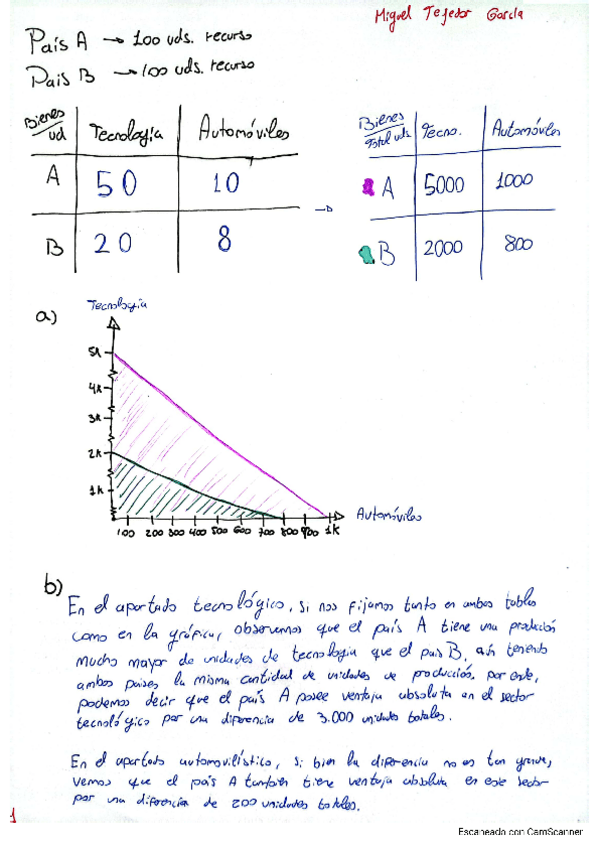 Miguel Tejedor García
País A → 100 uds. recurso
País B → 100 uds. recurso
Bienes/ud Tecnología Automóviles
A 50 10
B 20 8
→
Bienes/total uds. Tecno. Automóviles
A 5000 1000
B 2000 800
a)
Tecnología
5k
4k
3k
2k
1k
100 200 300 400 500 600 700 800 900 1k
Automóviles
b)
En el apartado tecnológico, si nos fijamos tanto en ambas tablas
como en la gráfica, observamos que el país A tiene una producción
mucho mayor de unidades de tecnología que el país B, aún teniendo
ambos países la misma cantidad de unidades de producción, por ende,
podemos decir que el país A posee ventaja absoluta en el sector
tecnológico por una diferencia de 3.000 unidades totales.
En el apartado automovilístico, si bien la diferencia no es tan grande,
vemos que el país A también tiene ventaja absoluta en este sector
por una diferencia de 200 unidades totales.
1
Escaneado con CamScanner